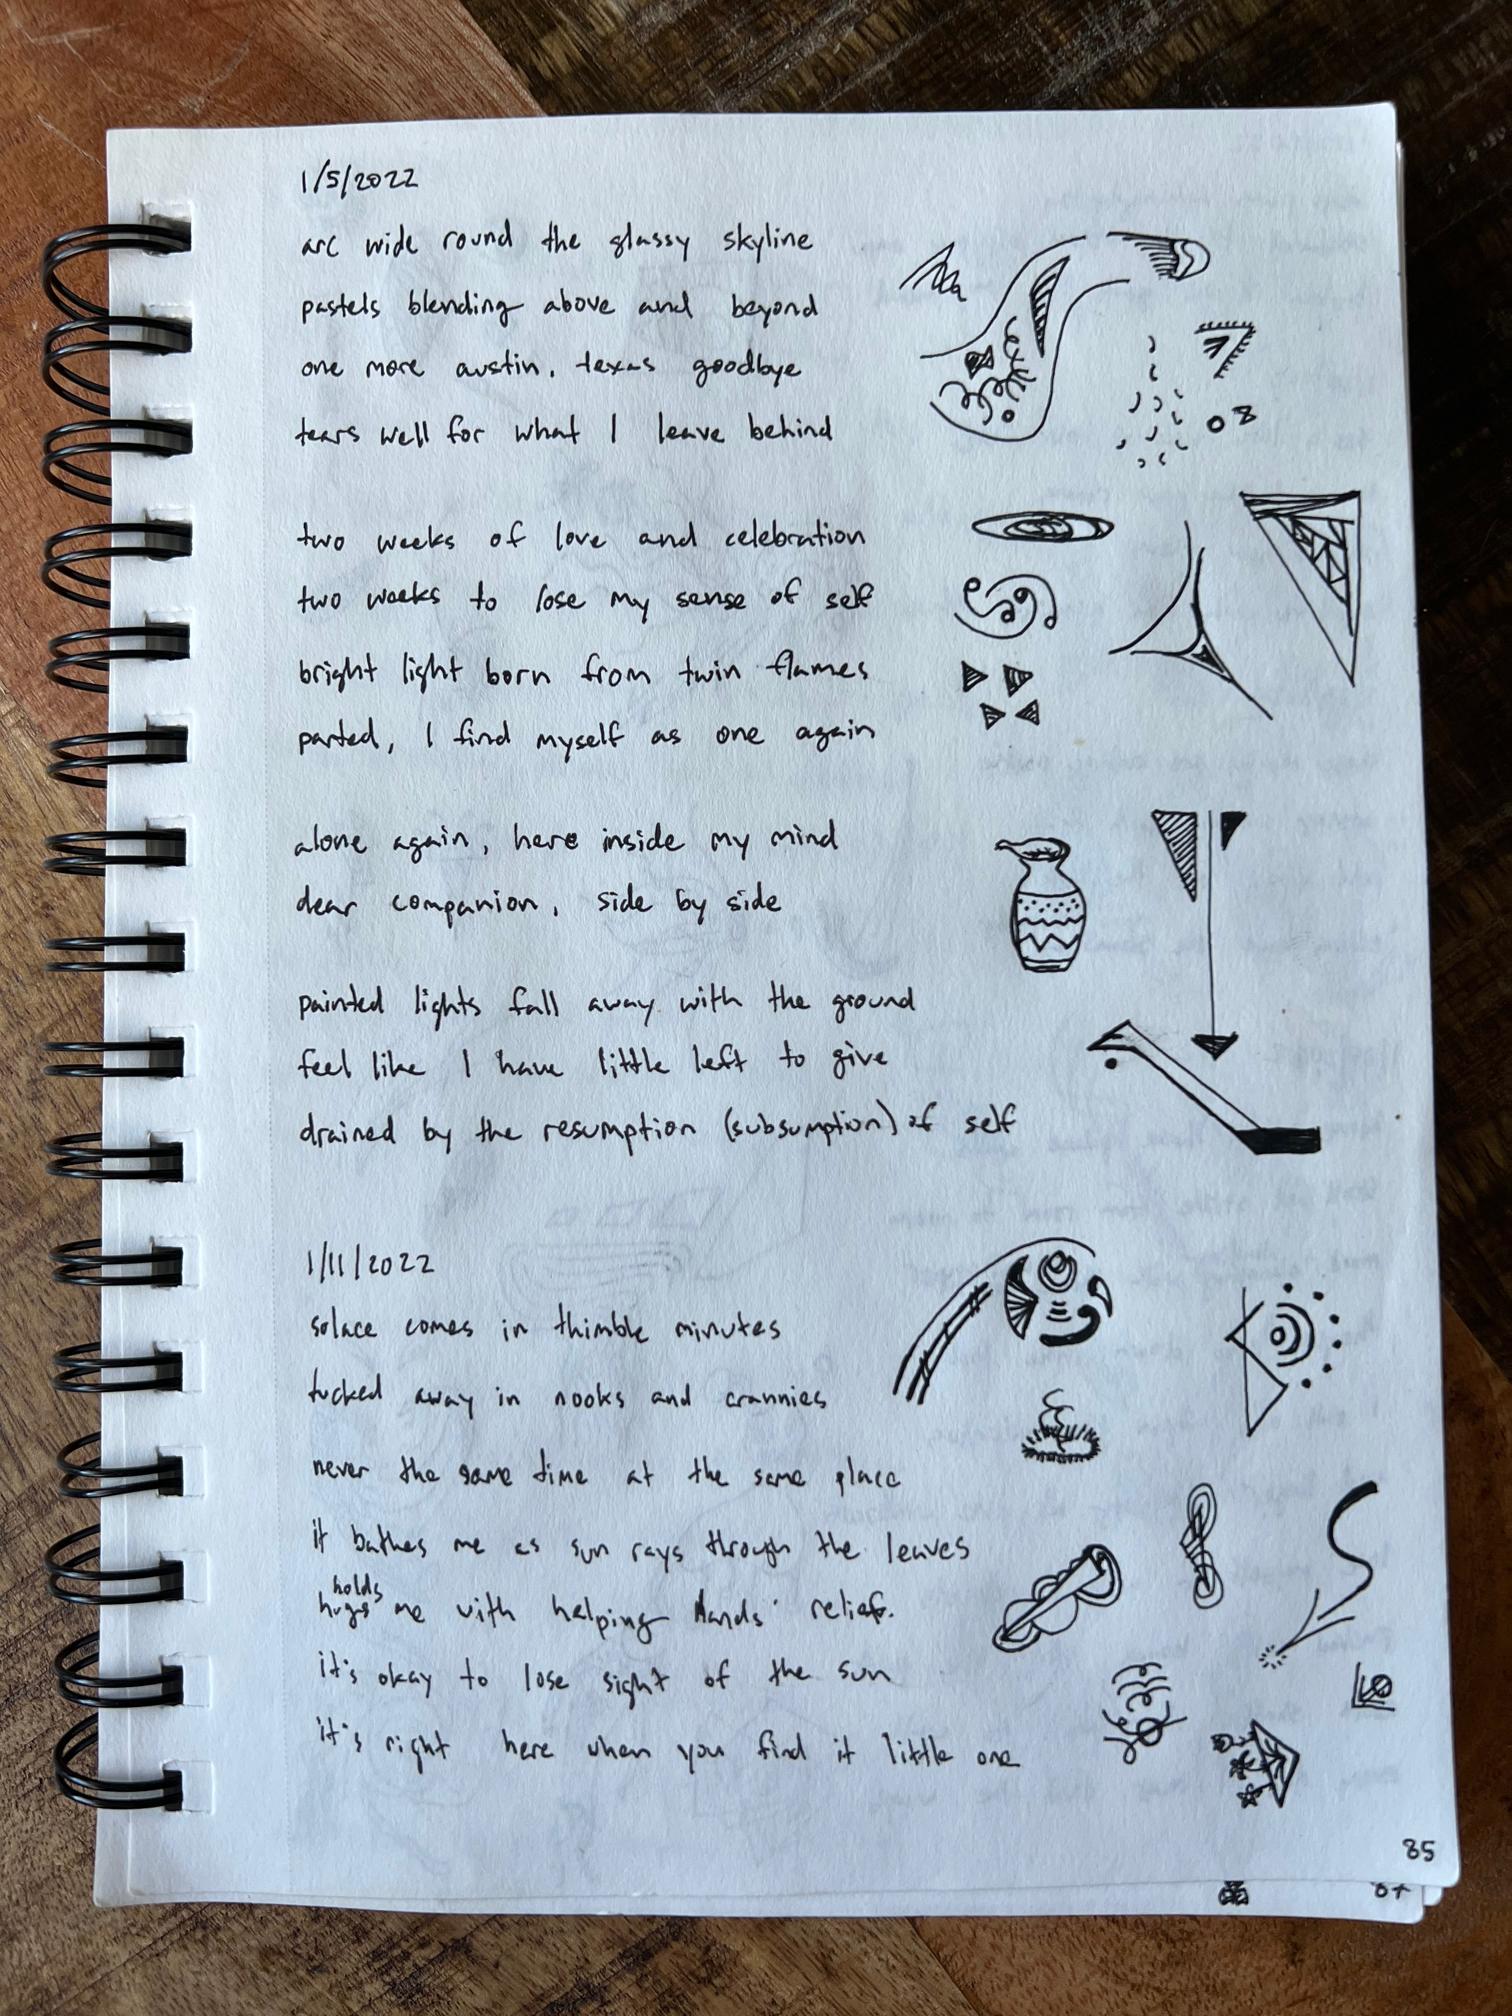 1/5/2022
arc wide round the glassy skyline
pastels blending above and beyond
one more austin, texas goodbye
tears well for what I leave behind
two weeks of love and celebration
two weeks to lose my sense of self
bright light born from twin flames
parted, I find myself as one again
alone again, here inside my mind
dear companion, side by side
painted lights fall away with the ground
feel like I have little left to give
drained by the resumption (subsumption) of self
1/11/2022
solace comes in thimble minutes
tucked away in nooks and crannies
never the same time at the same place
it bathes me as sun rays through the leaves
holds
hugs me with helping hands' relief.
it's okay to lose sight of the sun
it's right here when you find it little one
85
87